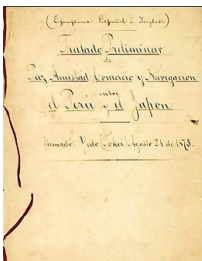 (Ejemplares Español é Inglés)
Tratado Preliminar
de
Paz, Amistad Comercio y Navegacion
entre
el Perú y el Japon
Firmado: Yedo (Tokei) Agosto 21 de 1873.